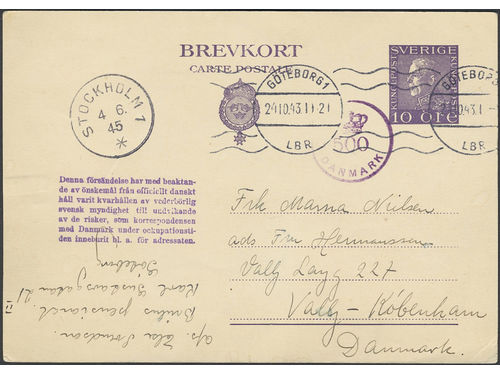 BREVKORT
CARTE POSTALE
SVERIGE
KUNGL POST
10 ÖRE
GÖTEBORG 1
24 10.43.11-21
LBR
STOCKHOLM 1
4 6.
45
500
DANMARK
Denna försändelse har med beaktan-
de av önskemål från officiellt danskt
håll varit kvarhållen av vederbörlig
svensk myndighet till undvikande
av de risker, som korrespondensen
med Danmark under ockupationsti-
den inneburit bl. a. för adressaten.
Frk Marna Nielsen
ads Fru Hermansson
Valby Langg 227
Valby-København
Danmark.
afs. Ella
pensionat.
Karl Gustavsgatan 21 II
Göteborg